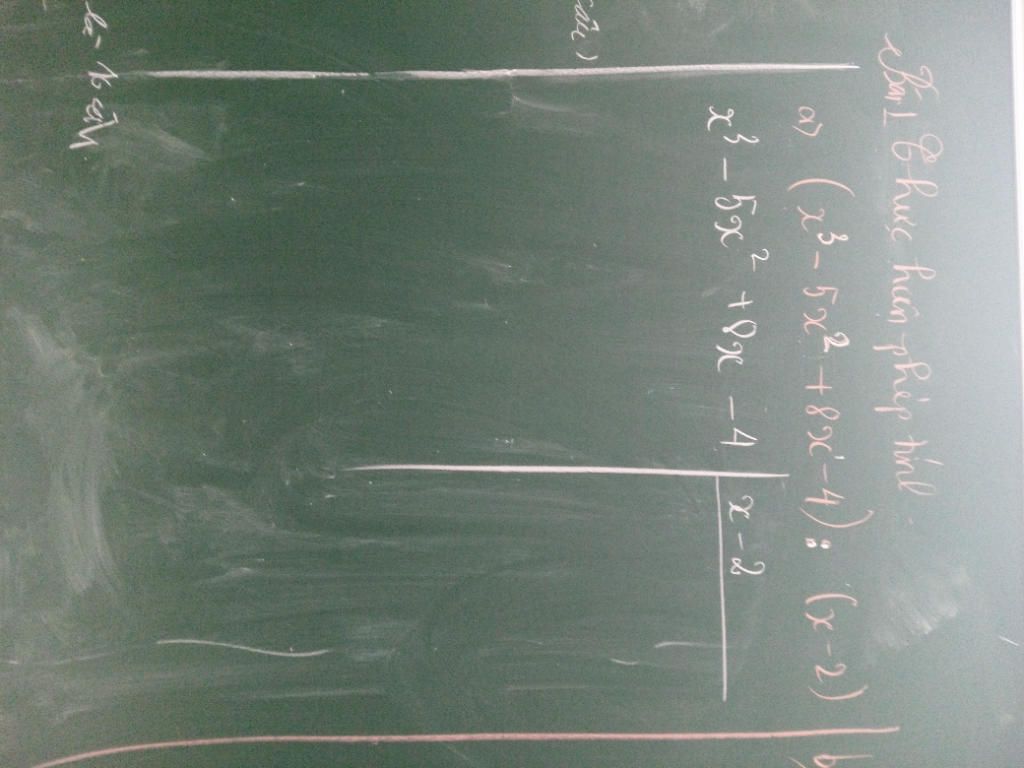 Bài 1 Thực hiện phép tính.
a) (x³ - 5x² + 8x - 4) : (x - 2)
x³ - 5x² + 8x - 4 | x - 2
b)